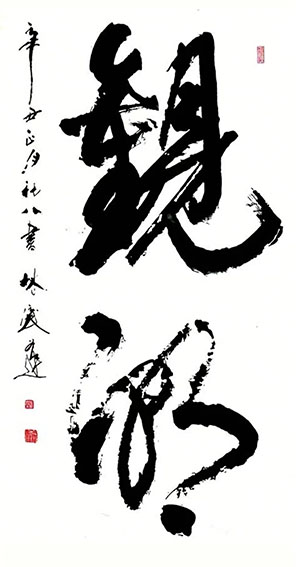 觀潮
辛丑正月初八書 林